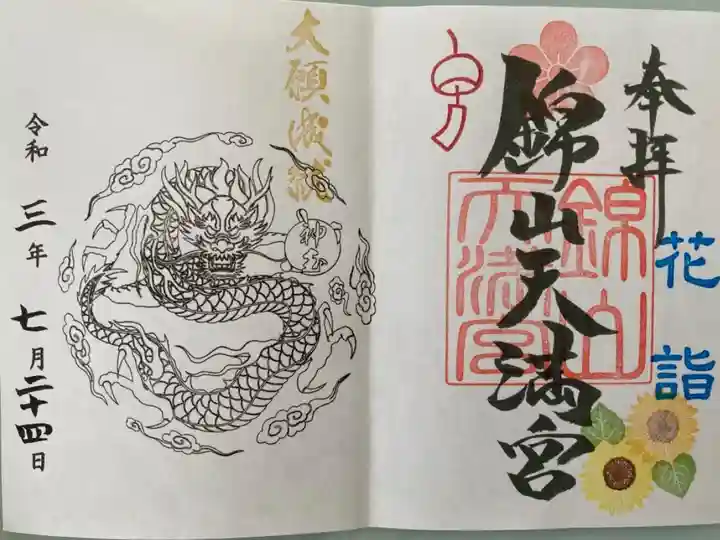 奉拝
花詣
錦山天満宮
錦山
天満宮
大願成就
神玉
令和三年七月二十四日